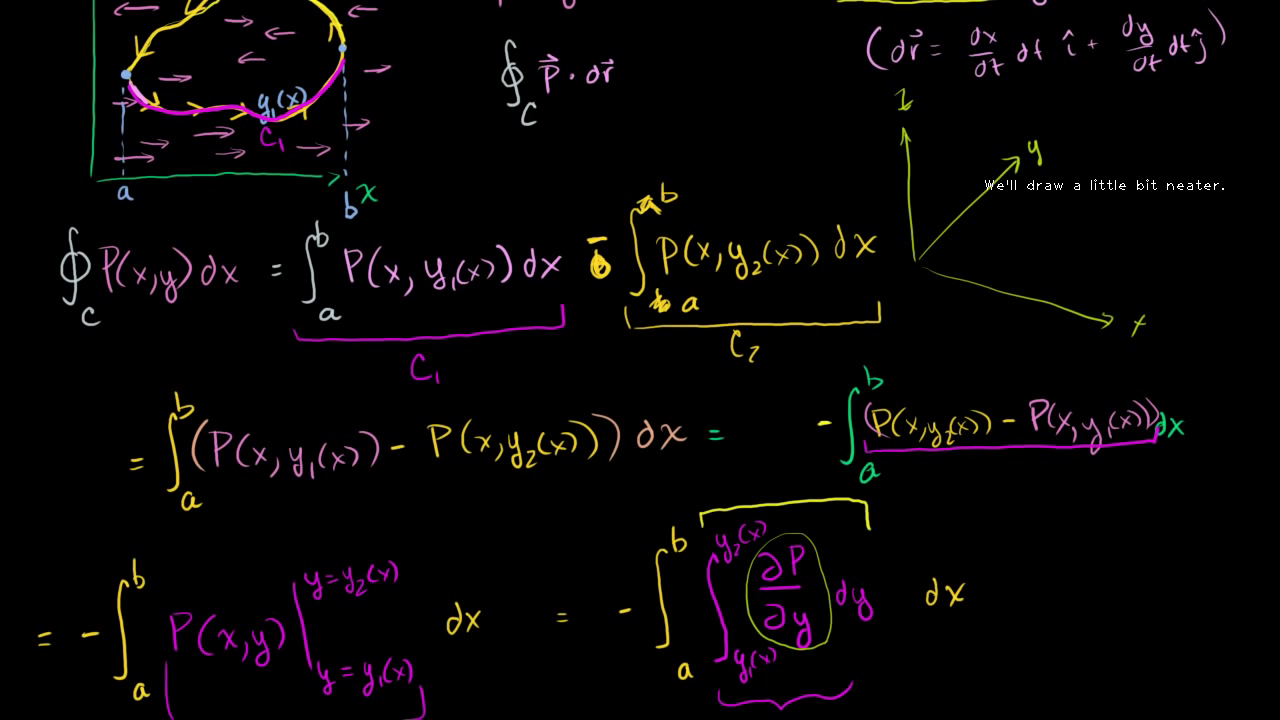 (dr⃗ = dx/dt dt î + dy/dt dt ĵ)
∮_C P⃗ · dr⃗
y₁(x)
C₁
a b x
z
y
x
We'll draw a little bit neater.
∮_C P(x,y) dx = ∫_a^b P(x, y₁(x)) dx − ∫_a^b P(x, y₂(x)) dx
C₁ C₂
= ∫_a^b (P(x, y₁(x)) − P(x, y₂(x))) dx = − ∫_a^b (P(x, y₂(x)) − P(x, y₁(x))) dx
= − ∫_a^b P(x,y) |_{y = y₁(x)}^{y = y₂(x)} dx = − ∫_a^b ∫_{y₁(x)}^{y₂(x)} ∂P/∂y dy dx